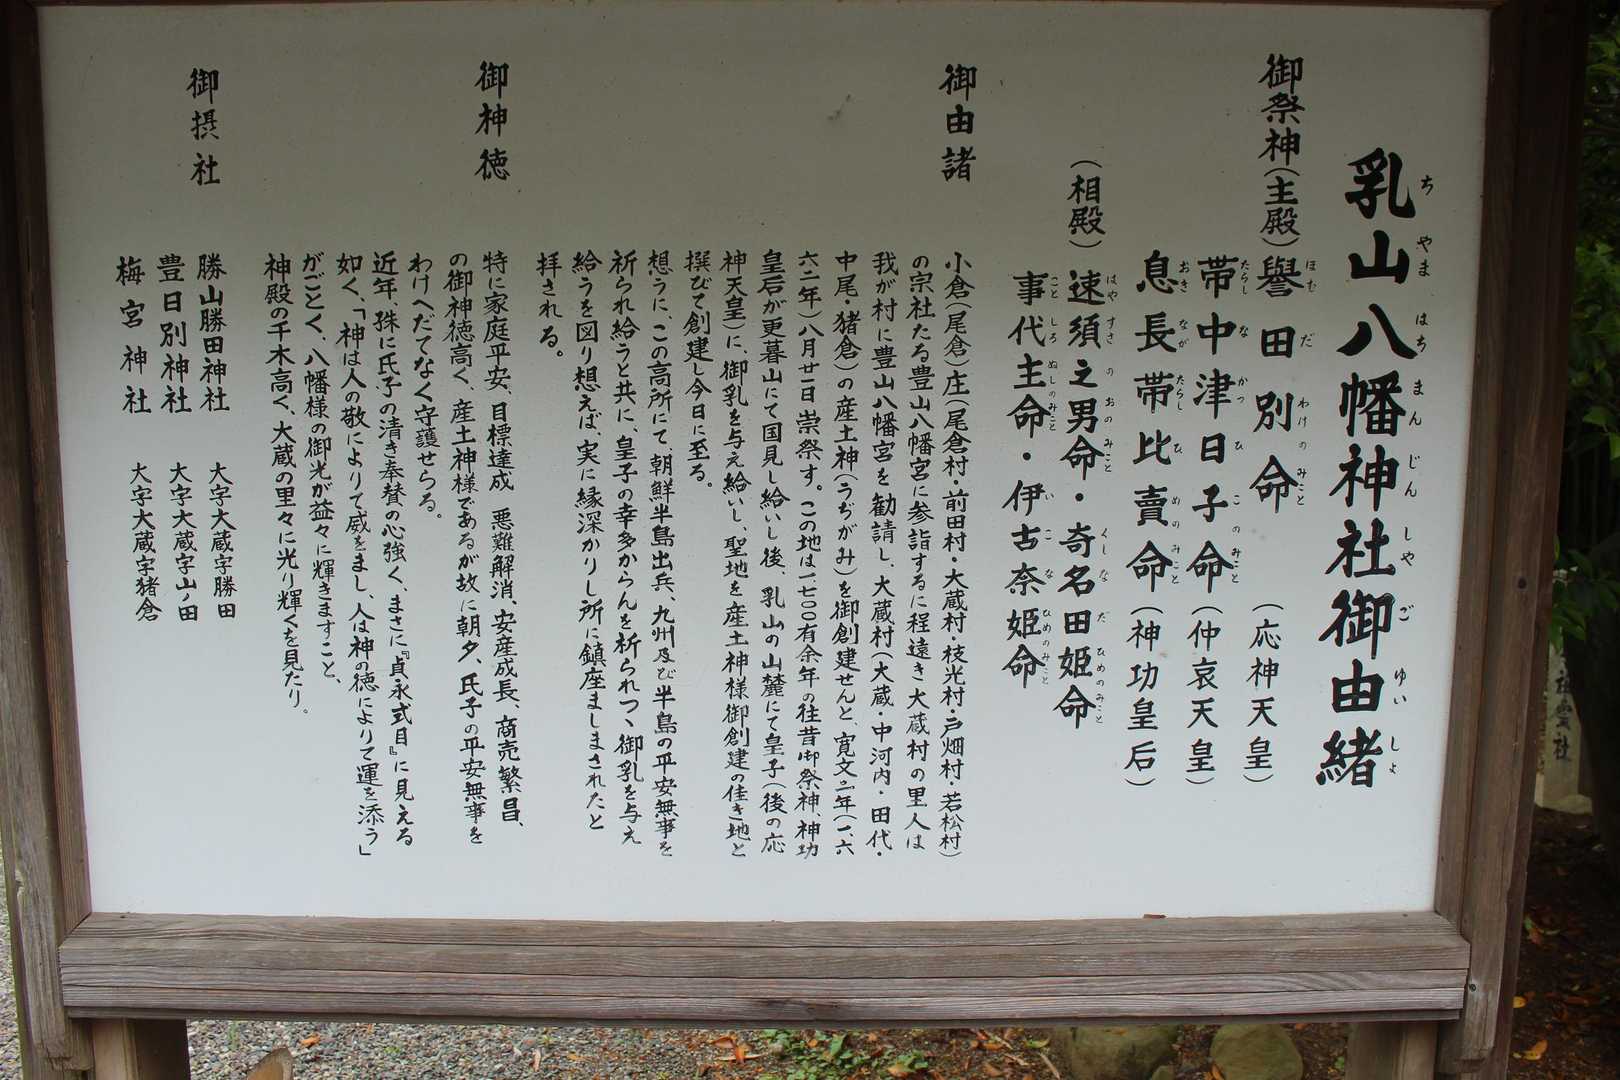 乳山八幡神社御由緒
ちやまはちまんじんしやごゆいしょ
御祭神(主殿)譽田別命(応神天皇)
ほむだわけのみこと
帯中津日子命(仲哀天皇)
たらしなかつひこのみこと
息長帯比賣命(神功皇后)
おきながたらしひめのみこと
(相殿)速須之男命・奇名田姫命
はやすさのおのみこと くしなだひめのみこと
事代主命・伊古奈姫命
ことしろぬしのみこと いこなひめのみこと
御由諸
小倉(尾倉)庄(尾倉村・前田村・大蔵村・枝光村・戸畑村・若松村)
の宗社たる豊山八幡宮に参詣するに程遠き大蔵村の里人は
我が村に豊山八幡宮を勧請し、大蔵村(大蔵・中河内・田代・
中尾・猪倉)の産土神(うぢがみ)を御創建せんと、寛文二年(一、六
六二年)八月廿一日崇祭す。この地は一、七〇〇有余年の往昔御祭神、神功
皇后が更暮山にて国見し給いし後、乳山の山麓にて皇子(後の応
神天皇)に、御乳を与え給いし、聖地を産土神様御創建の佳き地と
撰びて創建し今日に至る。
想うに、この高所にて朝鮮半島出兵、九州及び半島の平安無事を
祈られ給うと共に、皇子の幸多からんを祈られつゝ御乳を与え
給うを図り想えば、実に縁深かりし所に鎮座ましまされたと
拝される。
御神徳
特に家庭平安、目標達成 悪難解消、安産成長、商売繁昌、
の御神徳高く、産土神様であるが故に朝夕、氏子の平安無事を
わけへだてなく守護せらる。
近年、殊に氏子の清き奉賛の心強く、まさに『貞永式目』に見える
如く、「神は人の敬によりて威をまし、人は神の徳によりて運を添う」
がごとく、八幡様の御光が益々に輝きますこと、
神殿の千木高く、大蔵の里々に光り輝くを見たり。
御摂社
勝山勝田神社 大字大蔵字勝田
豊日別神社 大字大蔵字山ノ田
梅宮神社 大字大蔵字猪倉